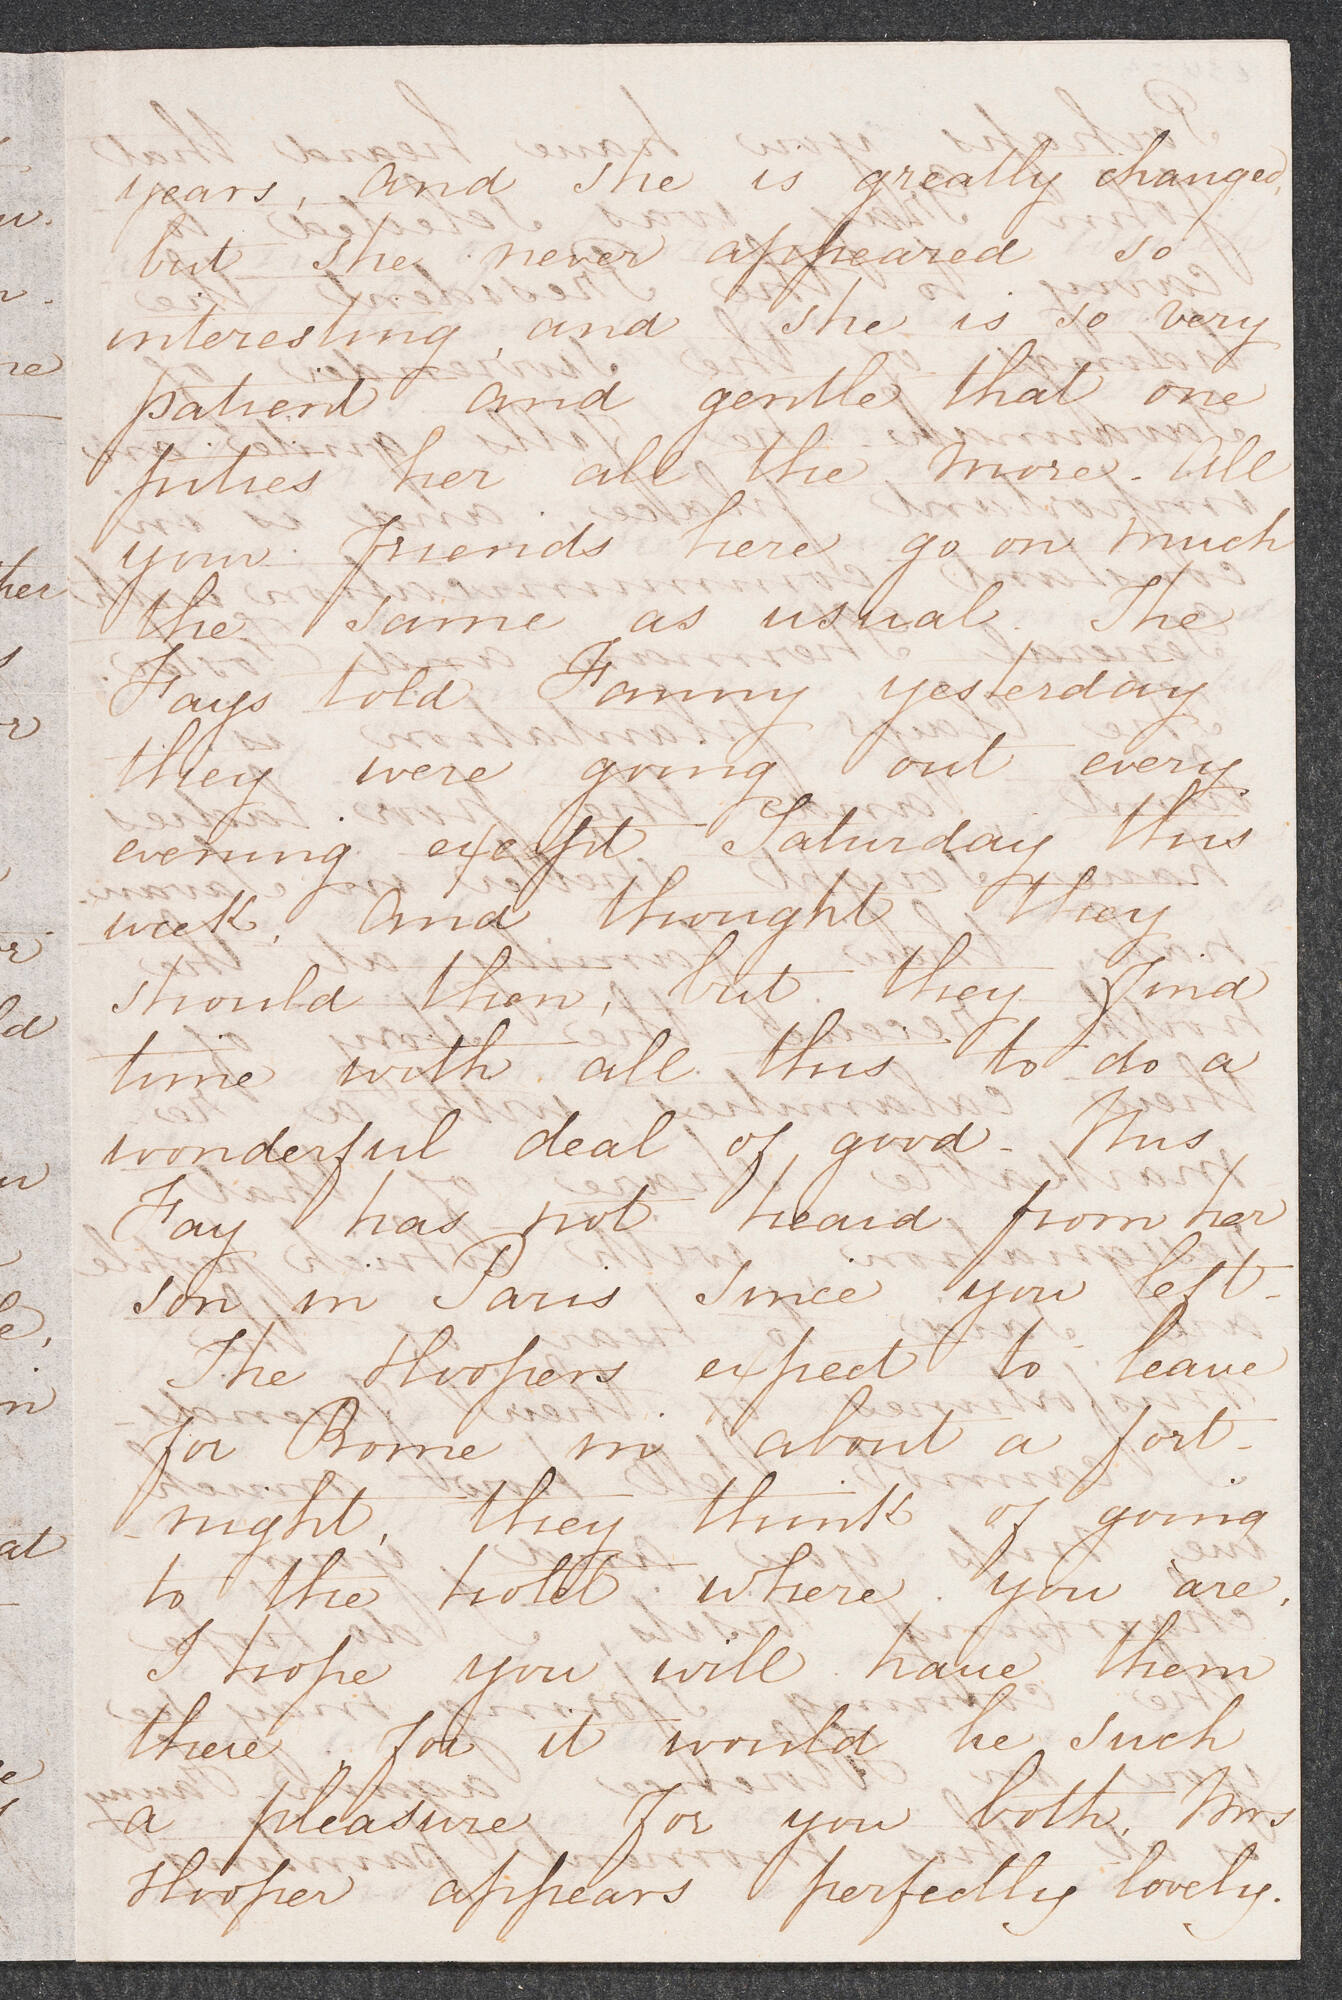 years, and she is greatly changed,
but she never appeared so
interesting, and she is so very
patient and gentle that one
pities her all the more. All
your friends here go on much
the same as usual. The
Fays told Fanny yesterday
they were going out every
evening except Saturday this
week, and thought they
should then, but they find
time with all this to do a
wonderful deal of good. Mrs
Fay has not heard from her
son in Paris since you left.
The Hoopers expect to leave
for Rome in about a fort-
-night, they think of going
to the hotel where you are,
I hope you will have them
there, for it would be such
a pleasure for you both. Mrs
Hooper appears perfectly lovely.